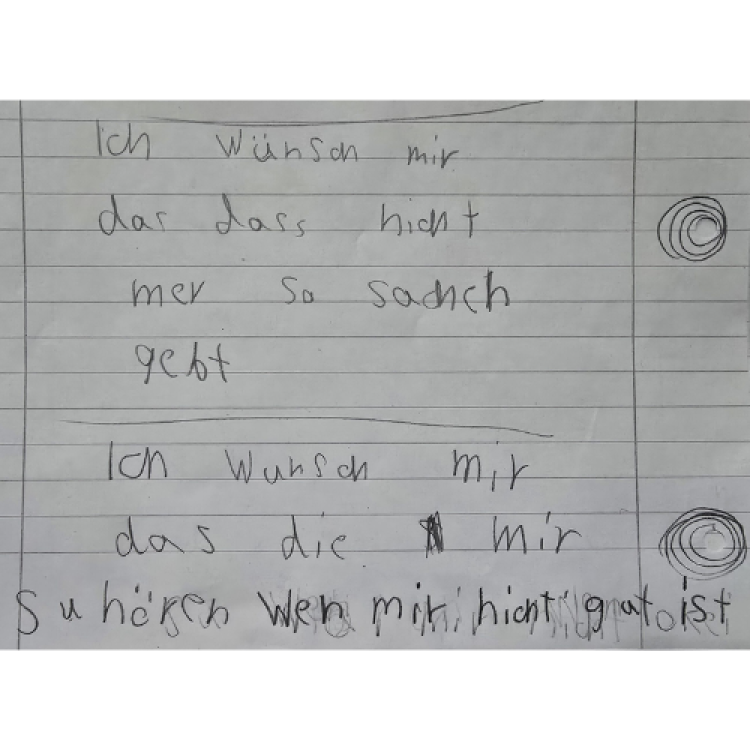 Ich wünsch mir
das dass nicht
mer so sachch
gebt
Ich wunsch mir
das die mir
su hören wen mir nicht gut ist